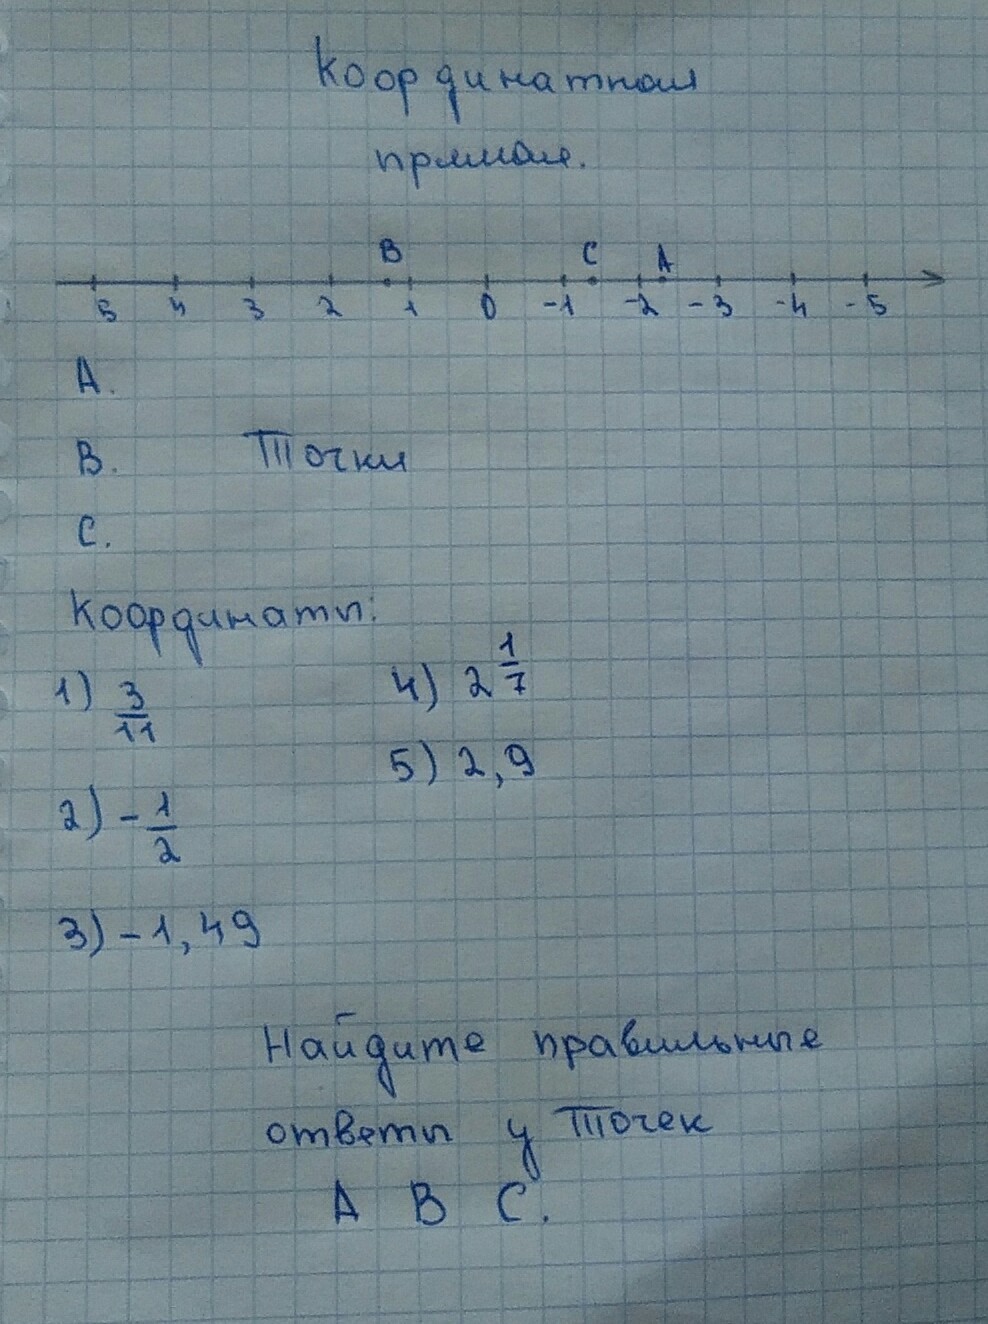 Координатная
прямая.
B C A
5 4 3 2 1 0 -1 -2 -3 -4 -5
A.
B. Точки
C.
Координаты:
1) 3/11 4) 2 1/7
5) 2,9
2) - 1/2
3) - 1,49
Найдите правильные
ответы у точек
A B C.